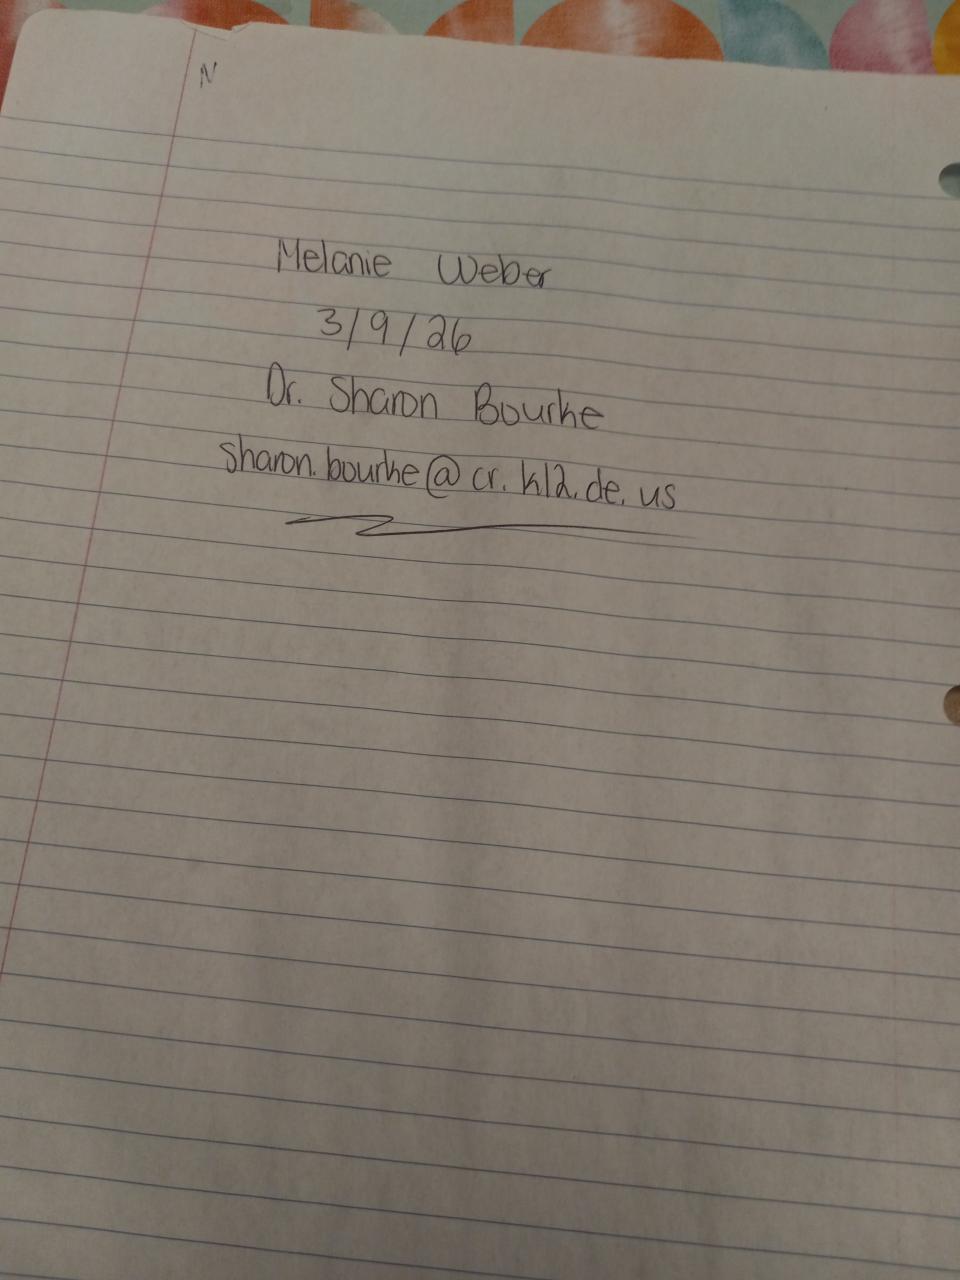 N
Melanie Weber
3/9/26
Dr. Sharon Bourke
sharon.bourke@cr.k12.de.us